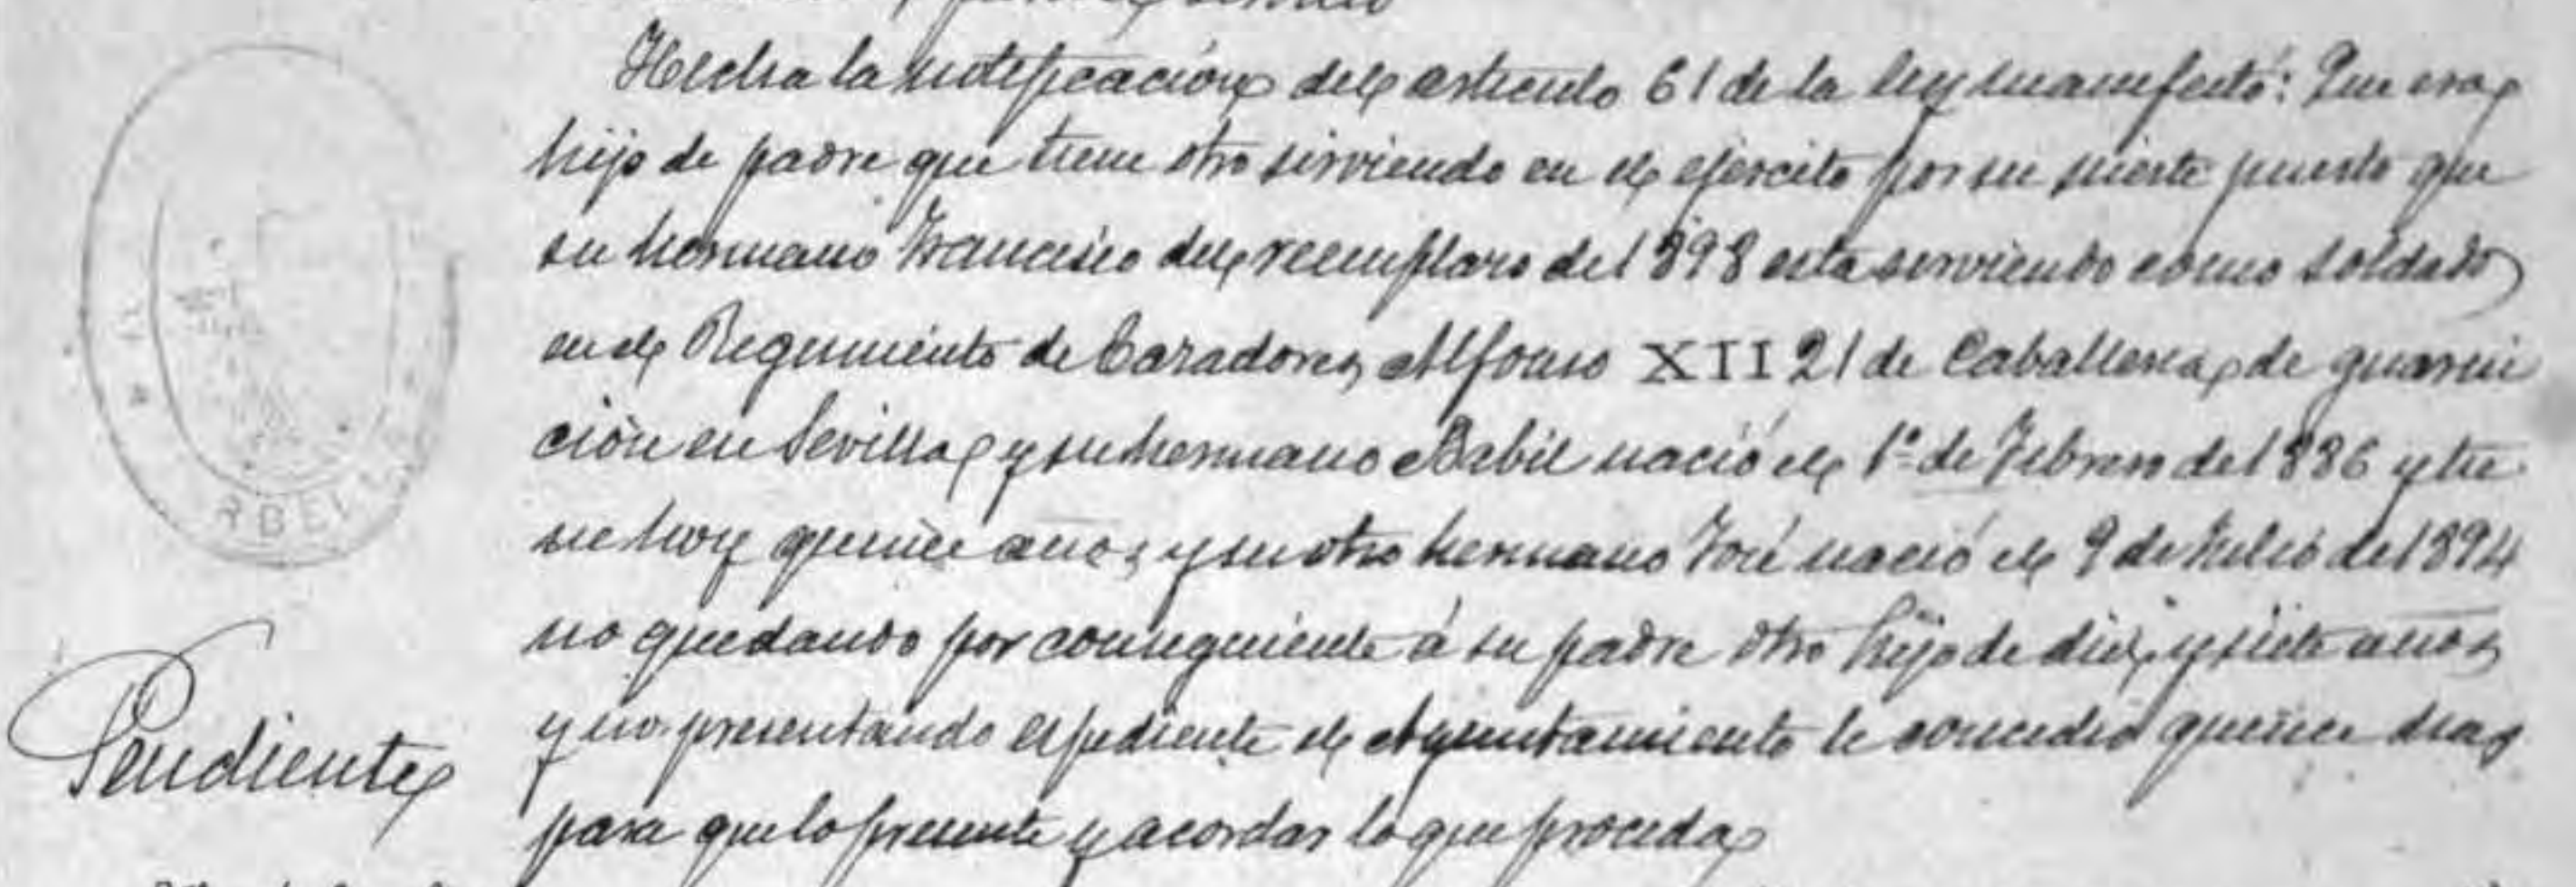 Hecha la notificación del articulo 61 de la ley manifestó: Que era
hijo de padre que tiene otro sirviendo en el ejercito por su suerte puesto que
su hermano Francisco del reemplazo de 1898 esta sirviendo como soldado
en el Regimiento de Cazadores Alfonso XII 21 de Caballeria, de guarni
ción en Sevilla y su hermano Babil nació el 1º de Febrero de 1886 y tie
ne hoy quince años y su otro hermano José nació el 9 de Julio de 1894
no quedando por consiguiente á su padre otro hijo de diez y siete años
y no presentando espediente el Ayuntamiento le concedió quince dias
Pendiente
para que lo presente y acordar lo que proceda